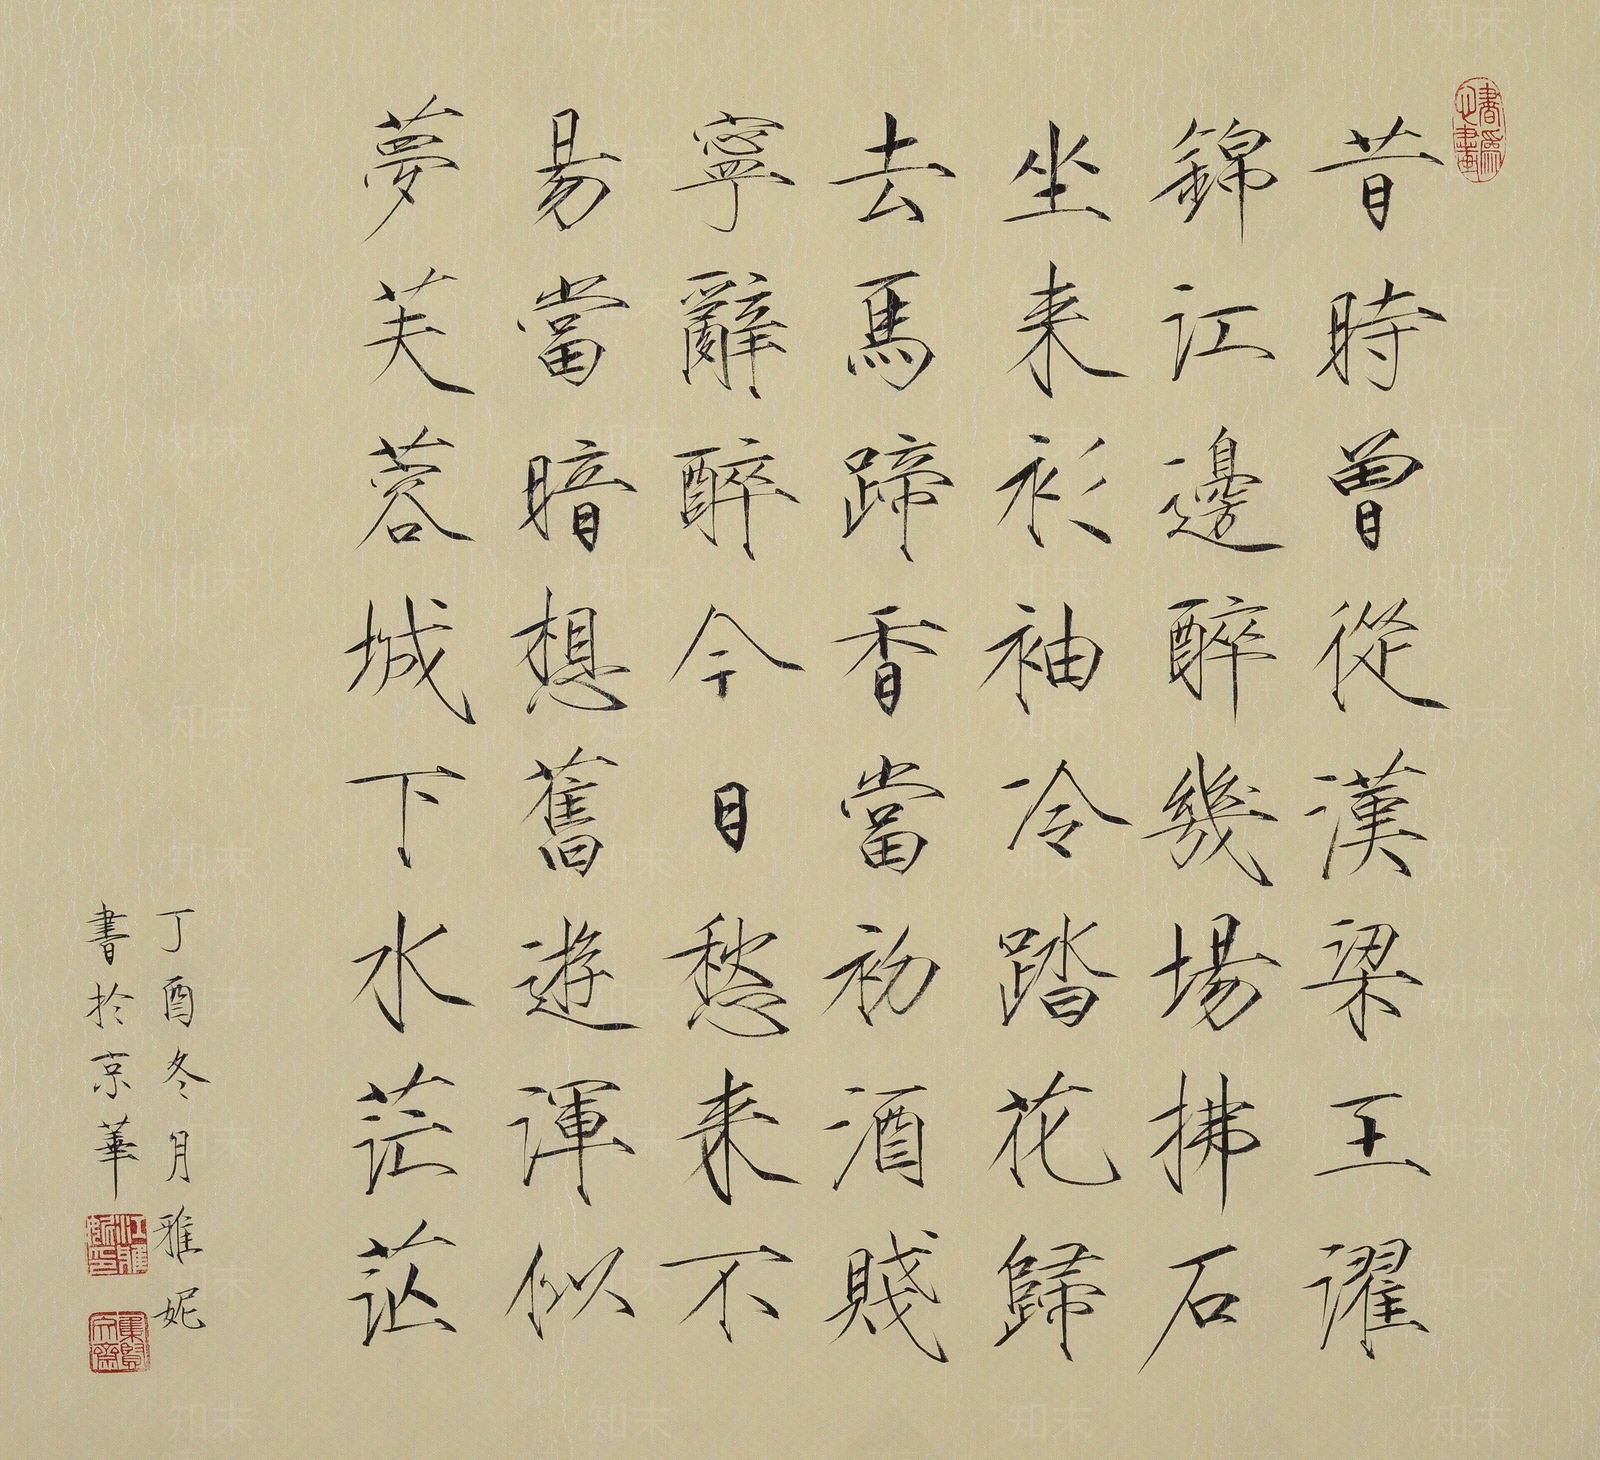 昔時曾從漢梁王濯
錦江邊醉幾場拂石
坐来衫袖冷踏花歸
去馬蹄香當初酒賤
寧辭醉今日愁来不
易當暗想舊遊渾似
夢芙蓉城下水茫茫
丁酉冬月雅妮
書於京華
知末